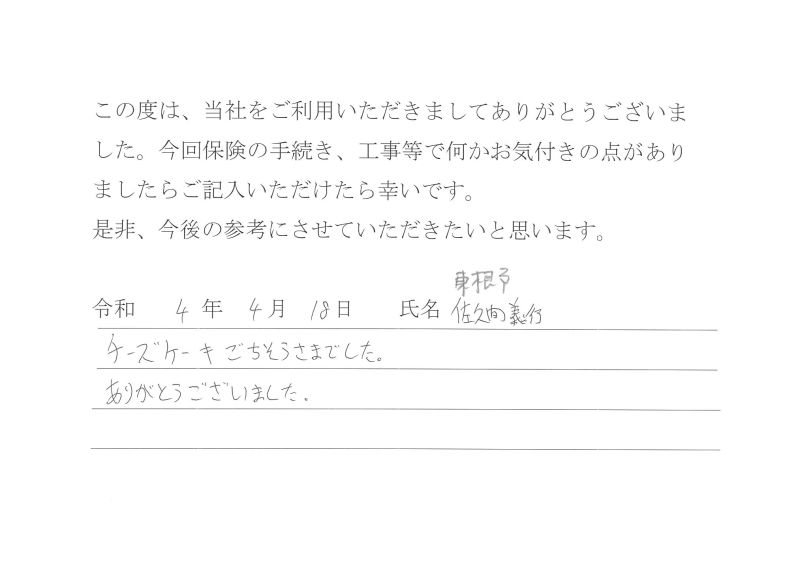 この度は、当社をご利用いただきましてありがとうございま
した。今回保険の手続き、工事等で何かお気付きの点があり
ましたらご記入いただけたら幸いです。
是非、今後の参考にさせていただきたいと思います。
東根市
令和 4 年 4 月 18 日 氏名 佐久間義行
チーズケーキごちそうさまでした。
ありがとうございました.